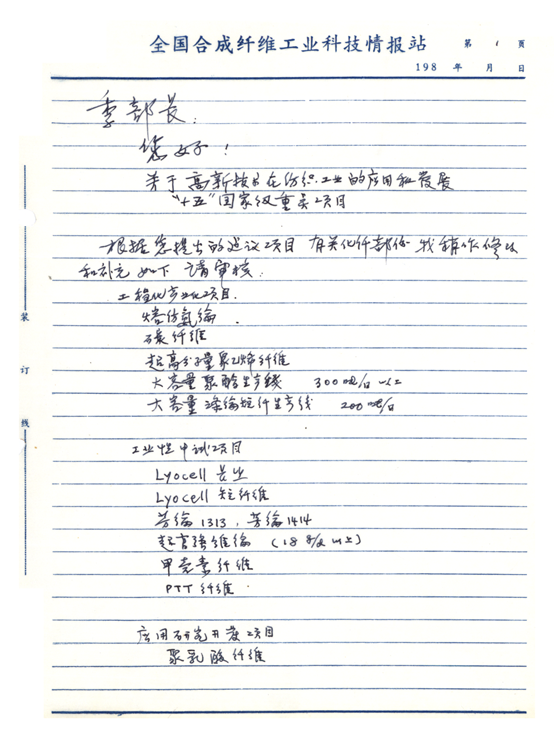 全国合成纤维工业科技情报站 第 1 页
198 年 月 日
季部长:
您好!
关于高新技术在纺织工业的应用和发展
"十五"国家级重点项目
根据您提出的建议项目 有关化纤部份 我稍作修改
和补充 如下 请审核.
工程化产业化项目.
熔纺氨纶
碳纤维
超高分子量聚乙烯纤维
大容量聚酯生产线 300吨/日以上
大容量涤纶短纤生产线 200吨/日
工业性中试项目
Lyocell 长丝
Lyocell 短纤维
芳纶1313,芳纶1414
超高强维纶 (18 g/d 以上)
甲壳素纤维
PTT 纤维
应用研究开发项目
聚乳酸纤维
装
订
线